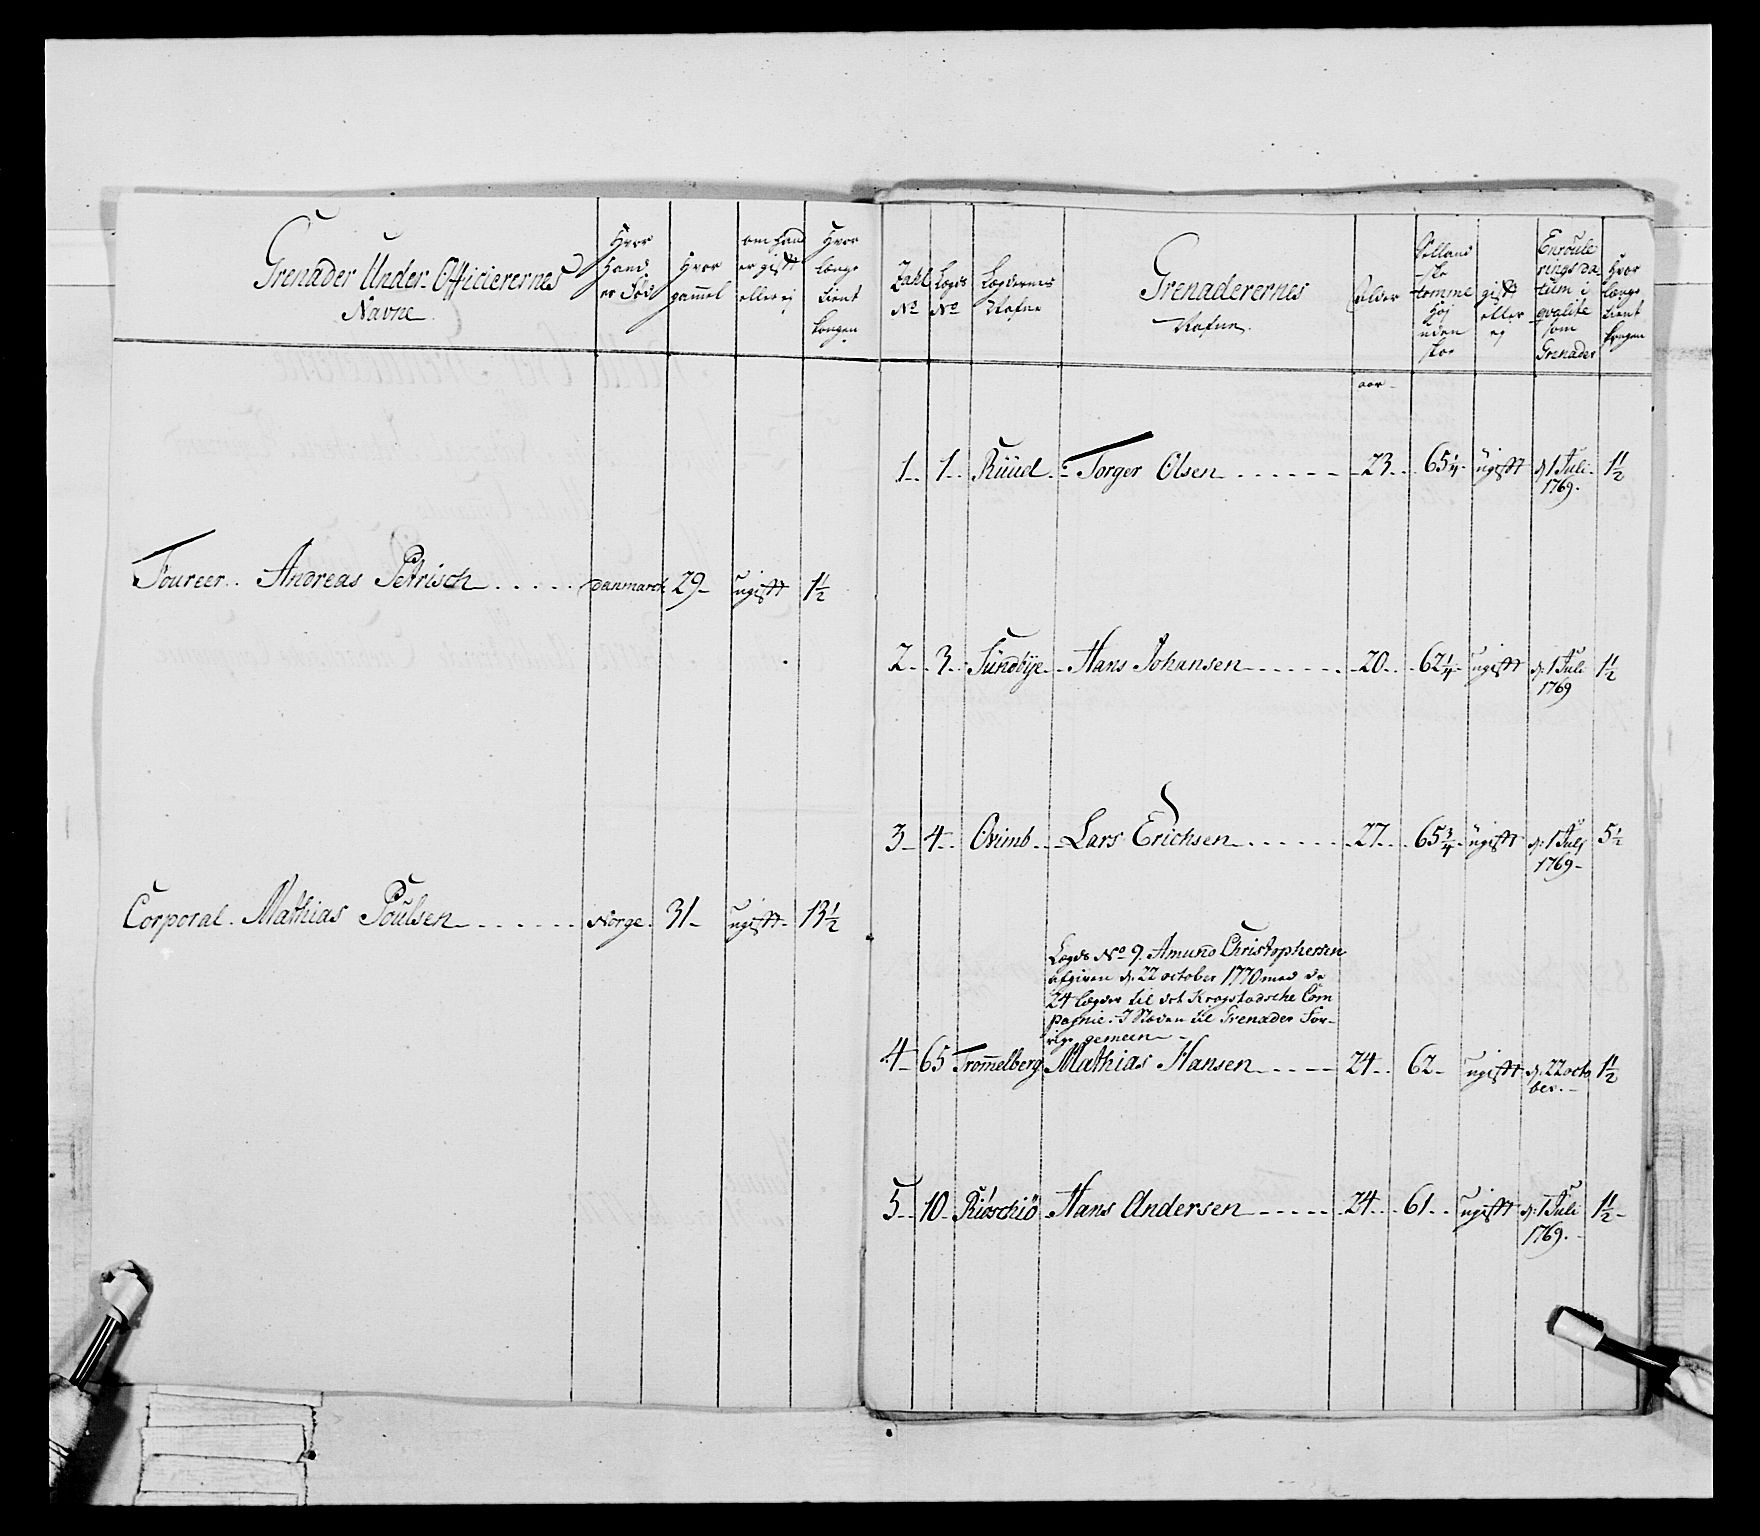 Grenader Under-Officierernes
Navne.
Hvor
Hand
er Fød
Hvor
gammel
om hand
er gift
eller ej
Hvor
længe
tient
kongen
Foureer. Andreas Petrisch . . . . . Danmarck 29 - ugift 1½
Corporal. Mathias Poulsen . . . . . . Norge. 31 - ugift - 13½
Zahl
No
Lægds
No
Lægdernes
Nafne
Grenaderernes
Nafne.
Alder
Tomme
høj
uden
skoe
gift
eller
ej
Enroule
rings Da
tum i
qvalite
som
Grenader
Hvor
længe
tient
kongen
aar -
1 - 1 - Rüüd - Torger Olsen . . . . . . 23 - 65¼ - ugift d. 1 Juli - 1½
1769.
2 - 3 - Sundbÿe - Hans Johansen . . . . . . 20 - 62¼ - ugift d. 1 Juli 1½
1769
3 - 4 - Ovimb - Lars Erichsen . . . . . . 27 - 65¾ - ugift d. 1 Julj 5½
1769 -
Lægds No 9. Amund Christophersen
afgiven d. 22 october 1770 med de
24 lægder til det Krogstadsche Com
pagnie. I Støden til Grenader For-
rige gemeen -
4 - 65 Trommelberg Mathias Hansen . . . . 24 - 62 - ugift d. 22 octo 1½
ber. -
5 - 10 - Riøschiø Hans Andersen . . . . . 24 - 61 - ugift d. 1 Juli 1½ -
1769. -